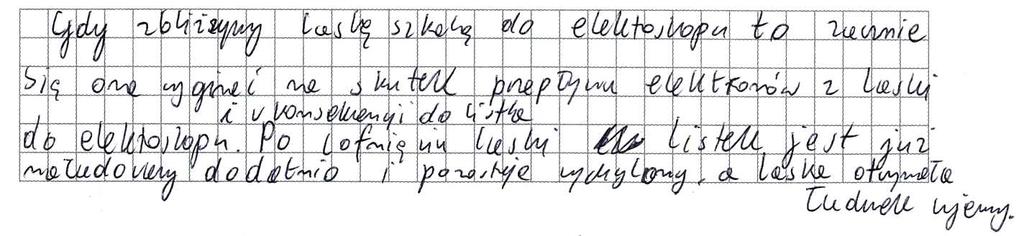 Gdy zbliżymy laskę szkalną do elektoskopu to zacznie
się ona wyginać na skutek przepływu elektronów z laski
i w konsekwencji do listka
do elektoskopu. Po cofnięciu laski listek jest już
naładowany dodatnio i pozostaje wychylony, a laska otrzymała
ładunek ujemny.